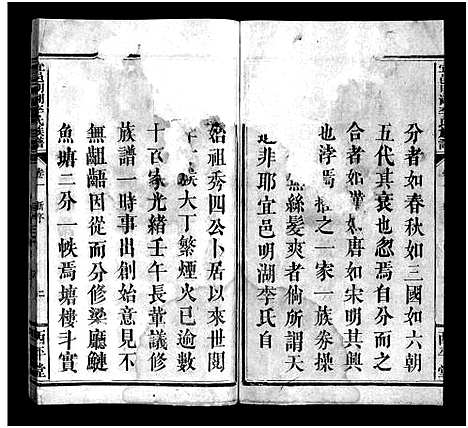 分者如春秋如三國如六朝
五代其衰也忽焉自分而之
合者如漢如唐如宋明其興
也浡焉推之一家一族劵操
無絲髮爽者倘所謂天
是非耶宜邑明湖李氏自
始祖秀四公卜居以來世閱
族大丁繁煙火已逾數
十百家光緒壬午長輩議修
族譜一時事出創始意見不
無齟齬因從而分修梁廳鰱
魚塘二分一帙焉塘樓斗實
宜邑明湖李氏族譜
卷一
新序
二
西平堂